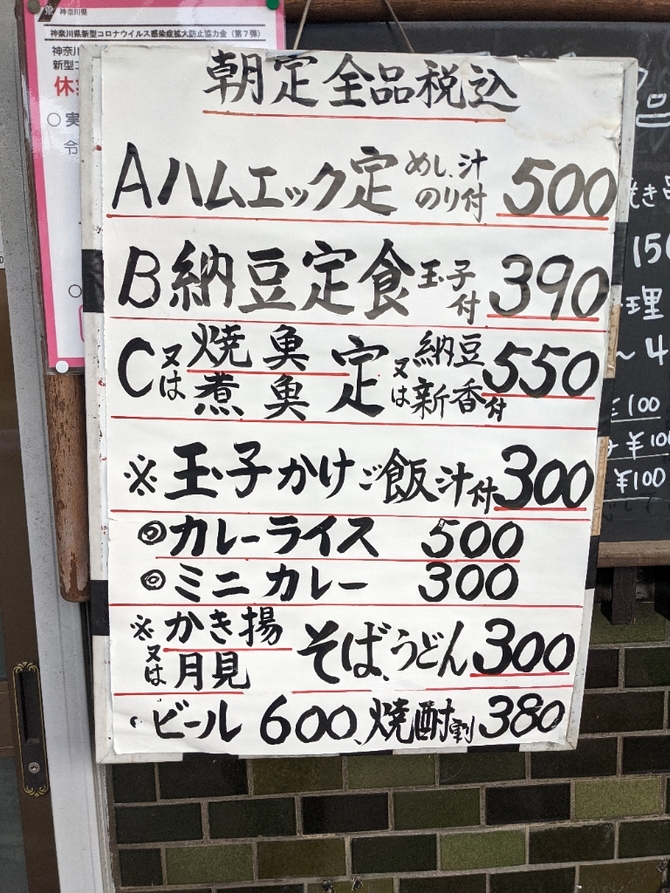 神奈川県
神奈川県新型コロナウイルス感染症拡大防止協力金（第7弾）
神奈川
新型コ
休
○実
令
朝定全品税込
Aハムエック定 めし、汁 のり付 500
B納豆定食 玉子付 390
C又は 焼魚 煮魚 定 又は 納豆 新香付 550
※玉子かけご飯汁付300
◎カレーライス 500
◎ミニカレー 300
※又は かき揚 月見 そば、うどん300
・ビール 600、焼酎割380
焼き
150
理
～4
100
¥100
¥100